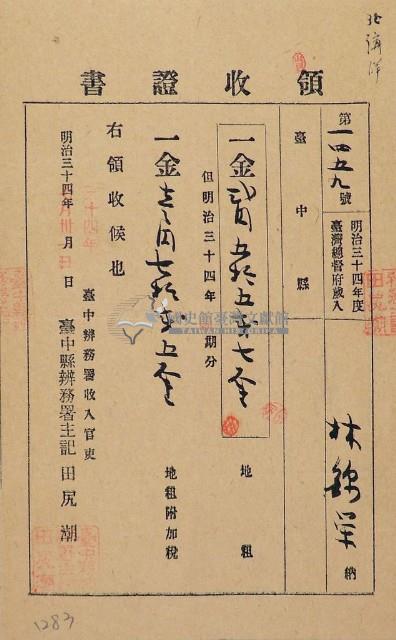 領收證書
第一四五九號
明治三十四年度
臺灣總督府歲入
臺中縣
林錦榮 納
一金貳圓五拾五錢七厘 地租
但明治三十四年 期分
一金壹圓七拾錢五厘 地租附加稅
右領收候也
臺中辨務署收入官吏
明治三十四年 月 日 臺中縣辨務署主記 田尻潮
國史館臺灣文獻館
TAIWAN HISTORICA
1283